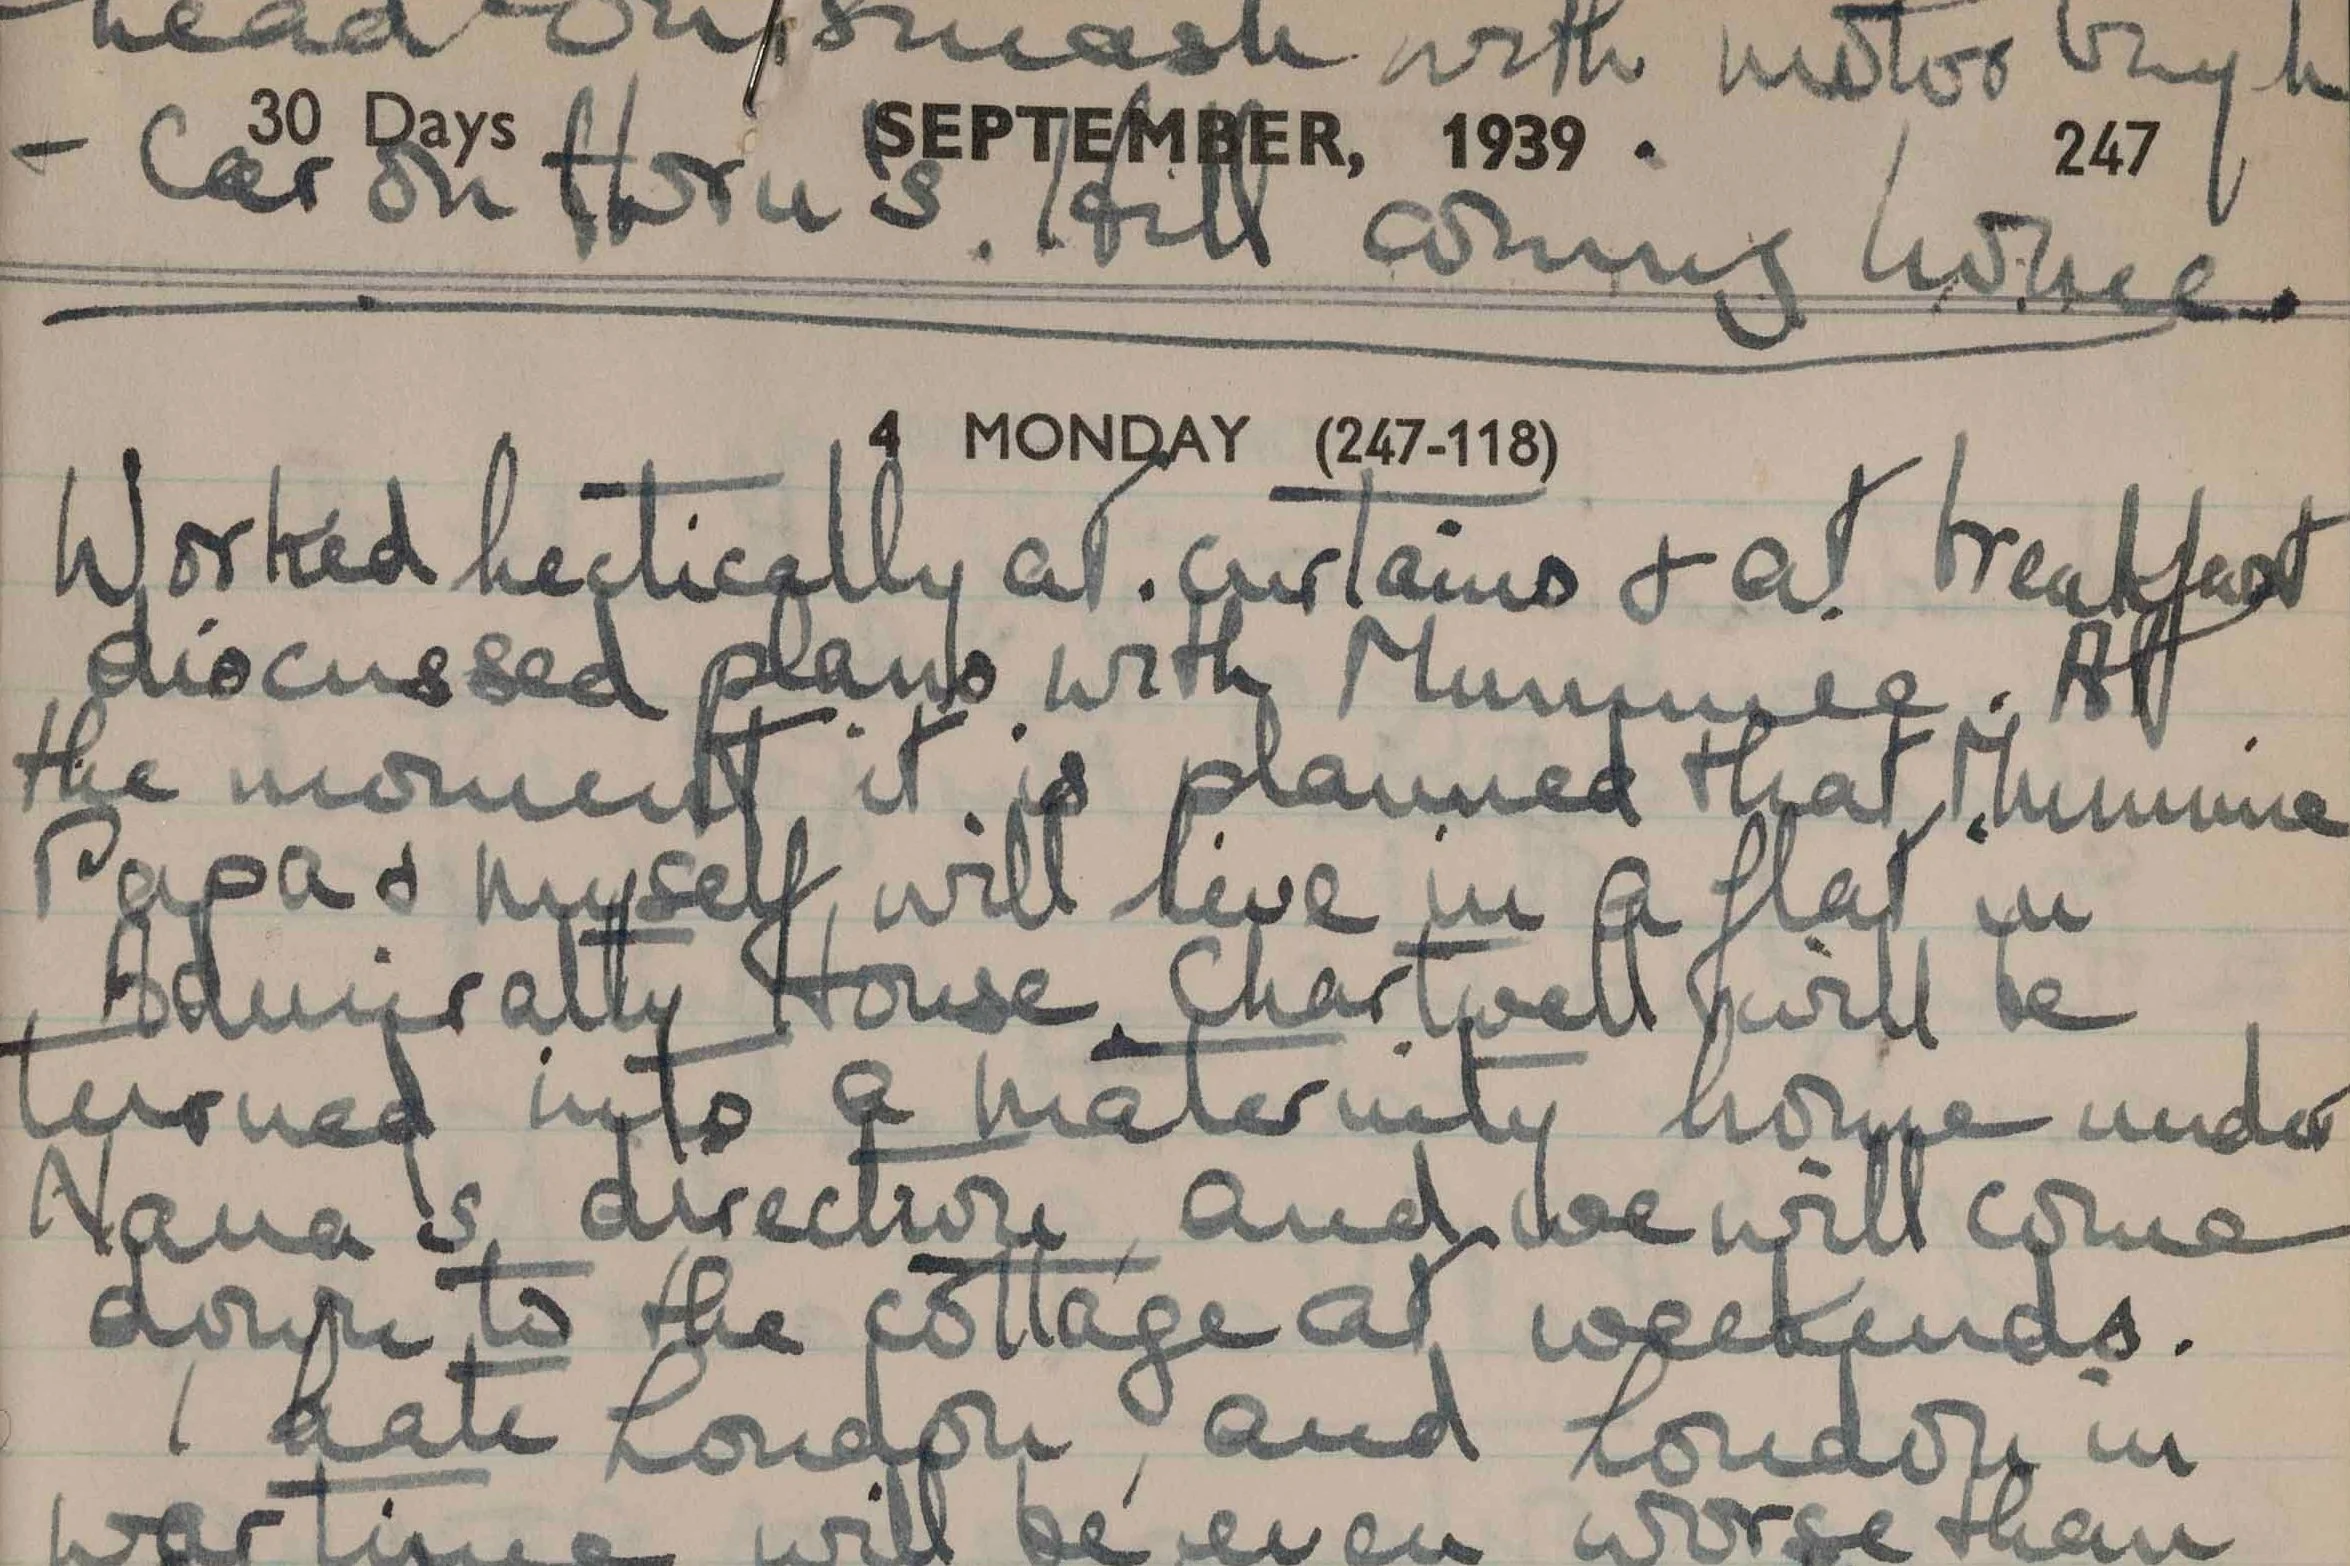 head on smash with motor
30 Days SEPTEMBER, 1939. 247
- Car on Horn's Hill coming home.
4 MONDAY (247-118)
Worked hectically at curtains & at breakfast
discussed plans with Mummie. At
the moment it is planned that Mummie
Papa & myself will live in a flat in
Admiralty House. Chartwell will be
turned into a maternity home under
Nana's direction, and we will come
down to the cottage at weekends.
I hate London, and London in
wartime will be even worse than